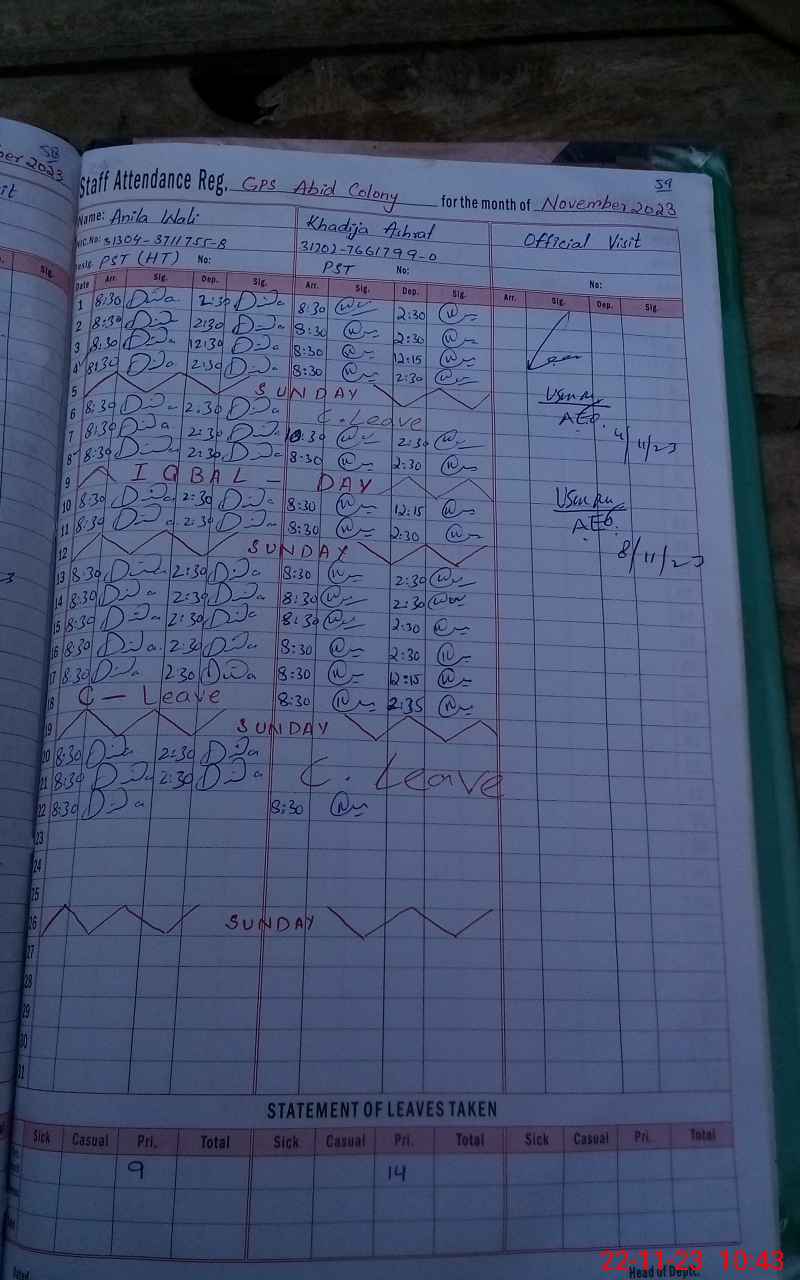 58
2023
59
Staff Attendance Reg. GPS Abid Colony for the month of November 2023
Name: Anila Wali Khadija Ashraf Official Visit
NIC.No: 31304-3711755-8 31202-7661799-0
Desig. PST (HT) No: PST No: No:
Date Arr. Sig. Dep. Sig. Arr. Sig. Dep. Sig. Arr. Sig. Dep. Sig.
1 8:30 2:30 8:30 2:30
2 8:30 2:30 8:30 2:30
3 8:30 12:30 8:30 12:15
4 8:30 2:30 8:30 2:30
5 SUNDAY
6 8:30 2:30 C. Leave
7 8:30 2:30 10:30 2:30
AEO.
4/11/23
8 8:30 2:30 8:30 2:30
9 IQBAL - DAY
10 8:30 2:30 8:30 12:15
11 8:30 2:30 8:30 2:30
AEO.
12 SUNDAY
8/11/23
13 8:30 2:30 8:30 2:30
14 8:30 2:30 8:30 2:30
15 8:30 2:30 8:30 2:30
16 8:30 2:30 8:30 2:30
17 8:30 2:30 8:30 12:15
18 C - Leave 8:30 2:35
19 SUNDAY
20 8:30 2:30
21 8:30 2:30 C. Leave
22 8:30 8:30
23
24
25
26 SUNDAY
27
28
29
30
31
STATEMENT OF LEAVES TAKEN
Sick Casual Pri. Total Sick Casual Pri. Total Sick Casual Pri. Total
9 14
Head of Deptt.
22-11-23 10:43